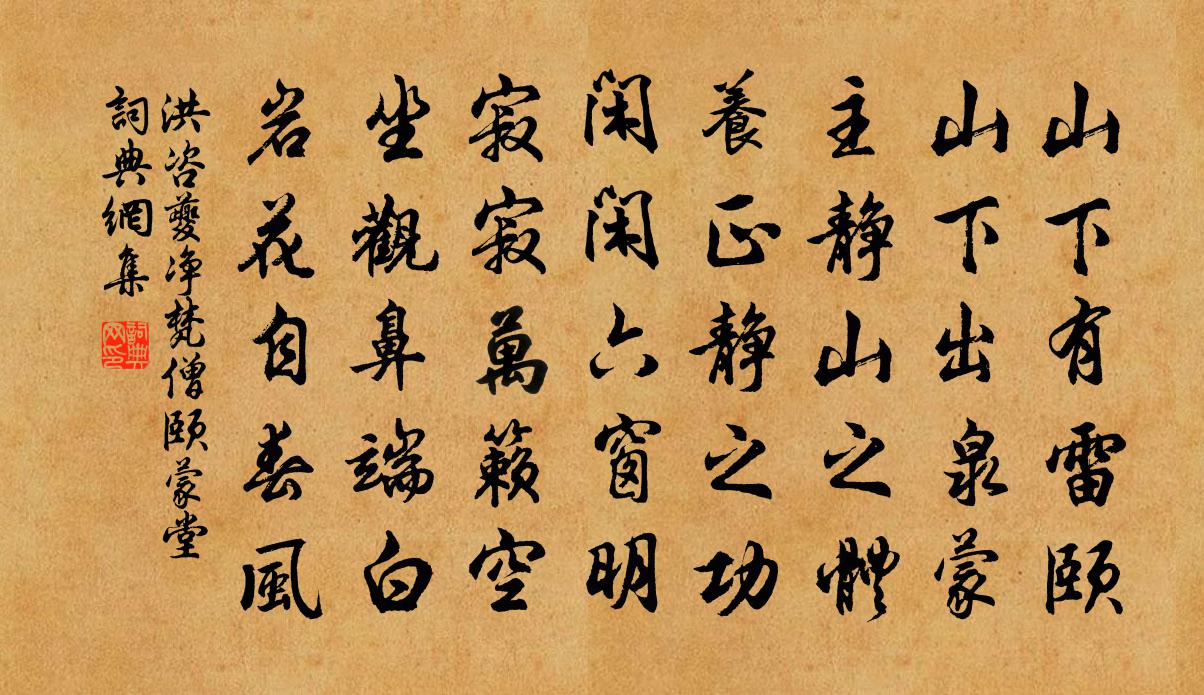 山下有雷頤
山下出泉蒙
主静山之體
養正静之功
閑閑六窗明
寂寂萬籟空
坐觀鼻端白
岩花自春風
洪咨夔净梵僧頤蒙堂
詞典網集
詞典网印